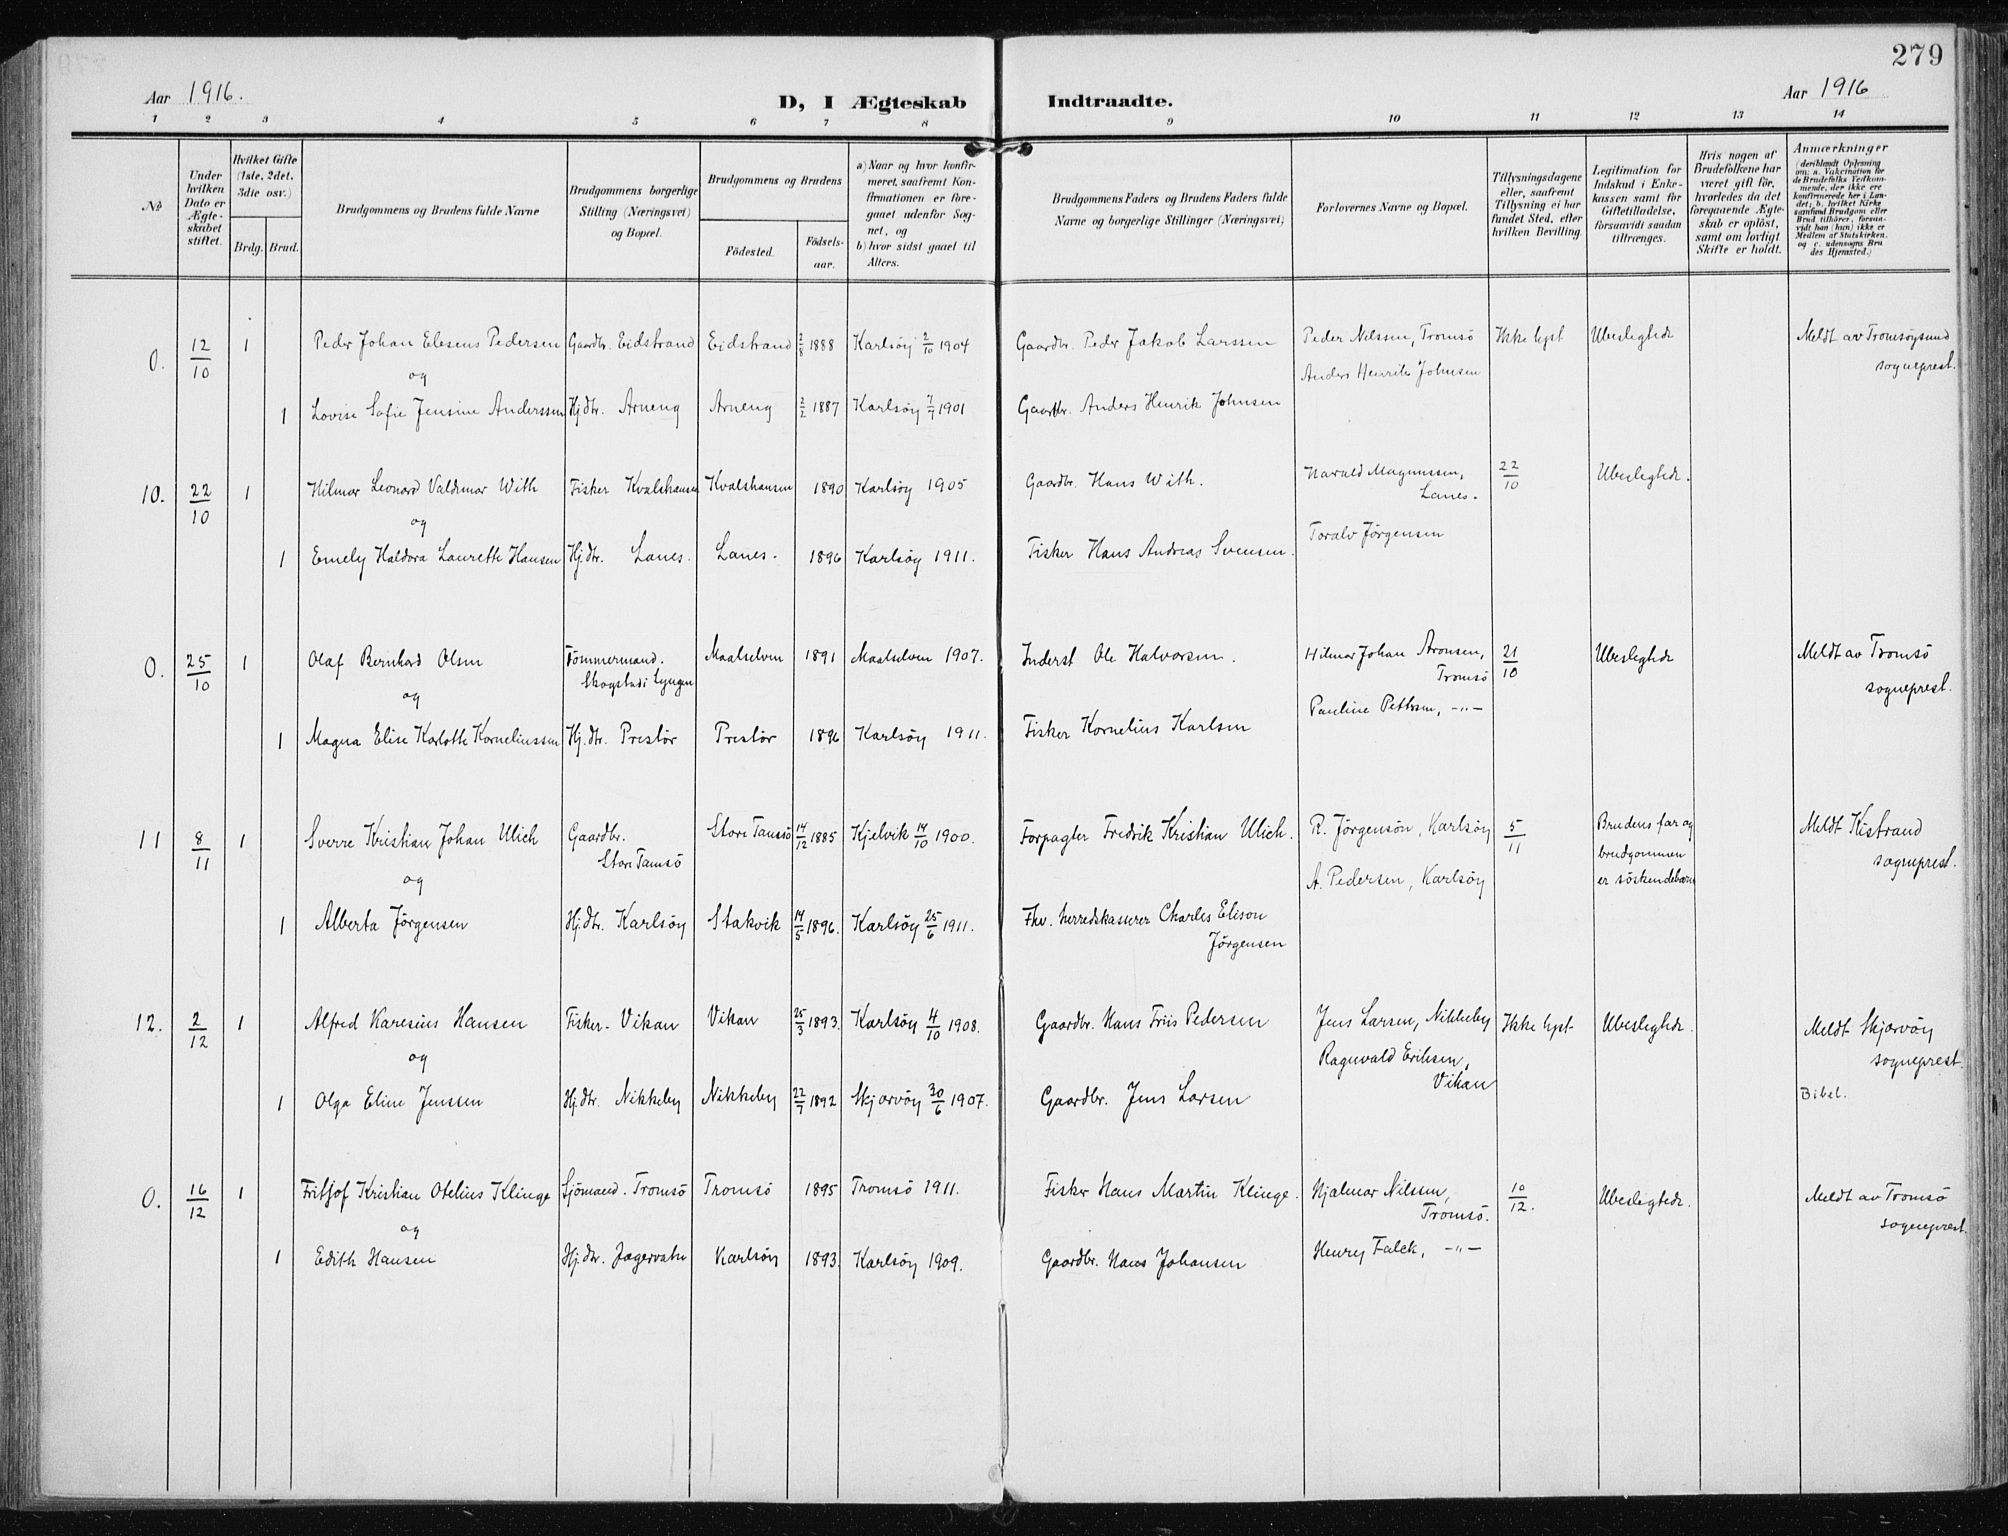 279
Aar 1916.
D, I Ægteskab Indtraadte.
Aar 1916
1 2 3 4 5 6 7 8 9 10 11 12 13 14
No
Under hvilken Dato er Ægteskabet stiftet.
Hvilket Gifte (1ste, 2det, 3die osv.)
Brdg. Brud.
Brudgommens og Brudens fulde Navne
Brudgommens borgerlige Stilling (Næringsvei) og Bopæl.
Brudgommens og Brudens
Födested. Födselsaar.
a) Naar og hvor konfirmeret, saafremt Konfirmationen er foregaaet udenfor Sognet, og
b) hvor sidst gaaet til Alters.
Brudgommens Faders og Brudens Faders fulde Navne og borgerlige Stillinger (Næringsvei)
Forlovernes Navne og Bopæl.
Tillysningsdagene eller, saafremt Tillysning ei har fundet Sted, efter hvilken Bevilling.
Legitimation for Indskud i Enkekassen samt for Giftetilladelse, forsaavidt saadan tiltrænges.
Hvis nogen af Brudefolkene har været gift för, hvorledes da det foregaaende Ægteskab er oplöst, samt om lovligt Skifte er holdt.
Anmærkninger
(deriblandt Oplysning om: a. Vakcination for de Brudefolks Vedkommende, der ikke ere konfirmerede her i Landet; b. hvilket Kirkesamfund Brudgom eller Brud tilhörer, forsaavidt han (hun) ikke er Medlem af Statskirken, og c. udensogns Brudes Hjemsted.)
0. 12/10 1 Peder Johan Elesens Pedersen Gaardbr. Eidstrand Eidstrand 2/8 1888 Karlsöy 2/10 1904 Gaardbr. Peder Jakob Larssen Peder Nilssen, Tromsö Ikke lyst Ubeslegtede Meldt av Tromsöysund
og Anders Henrik Johnsen sogneprest.
1 Lovise Sofie Jensine Anderssen Hj.dtr. Arneng Arneng 2/2 1887 Karlsöy 7/7 1901 Gaardbr. Anders Henrik Johnsen
10. 22/10 1 Hilmar Leonard Valdemar With Fisker Kvalshausen Kvalshausen 1890 Karlsöy 1905 Gaardbr. Hans With. Harald Magnussen, 22/10 Ubeslegtede.
og Lanes.
1 Emely Haldora Laurette Hansen Hj.dtr. Lanes. Lanes. 1896 Karlsöy 1911. Fisker Hans Andreas Svensen. Toralv Jörgensen
0. 25/10 1 Olaf Bernhard Olsen Tömmermand, Maalselven 1891 Maalselven 1907. Inderst Ole Halvorsen. Hilmar Johan Aronsen, 21/10 Ubeslegtede Meldt av Tromsö
Skogstad i Lyngen Tromsö sogneprest.
og Pauline Pettersen, -"-
1 Magna Elise Karlotte Korneliussen Hj.dtr. Prestör Prestör 1896 Karlsöy 1911. Fisker Kornelius Karlsen
11 8/11 1 Sverre Kristian Johan Ulich Gaardbr. Store Tamsö 14/12 1885 Kjelvik 14/10 1900. Forpagter Fredrik Kristian Ulich. R. Jörgensön, Karlsöy 5/11 Brudens far og Meldt Kistrand
Store Tamsö brudgommen sogneprest.
og A. Pedersen, Karlsöy er söskendebarn
1 Alberta Jörgensen Hj.dtr. Karlsöy Stakvik 14/5 1896. Karlsöy 25/6 1911. Fhv. herredskasserer Charles Elison
Jörgensen
12. 2/12 1 Alfred Karesius Hansen Fisker - Vikan Vikan 25/3 1893. Karlsöy 4/10 1908. Gaardbr. Hans Friis Pedersen Jens Larsen, Nikkeby Ikke lyst Ubeslegtede. Meldt Skjærvöy
og Ragnvald Eriksen, sogneprest.
Vikan
1 Olga Eline Jenssen Hj.dtr. Nikkeby Nikkeby 22/7 1892 Skjærvöy 30/6 1907. Gaardbr. Jens Larsen Bibel.
0. 16/12 1 Fritjof Kristian Otelius Klinge Sjömand. Tromsö Tromsö 1895 Tromsö 1911. Fisker Hans Martin Klinge. Hjalmar Nilssen, 10/12. Ubeslegtede. Meldt av Tromsö
og Tromsö. sogneprest.
1 Edith Hansen Hj.dtr. Jægervatn Karlsöy 1893. Karlsöy 1909. Gaardbr. Hans Johansen Henry Falck, -"-